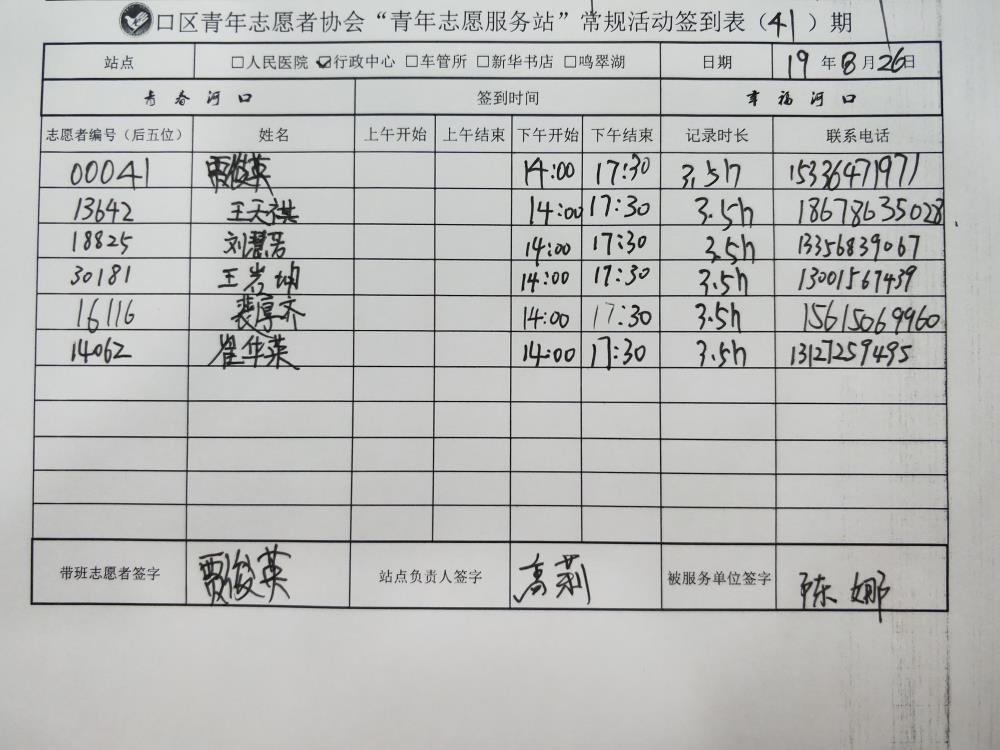 口区青年志愿者协会“青年志愿服务站”常规活动签到表（41）期
站点 □人民医院 ☑行政中心 □车管所 □新华书店 □鸣翠湖 日期 19年8月26日
青春河口 签到时间 幸福河口
志愿者编号（后五位） 姓名 上午开始 上午结束 下午开始 下午结束 记录时长 联系电话
00041 贾俊英 14:00 17:30 3.5h 15336471971
13642 王天祺 14:00 17:30 3.5h 18678635028
18825 刘慧芳 14:00 17:30 3.5h 13356839067
30181 王岩坤 14:00 17:30 3.5h 13001567439
16116 裴厚齐 14:00 17:30 3.5h 15615069960
14062 崔华荣 14:00 17:30 3.5h 13127259495
带班志愿者签字 贾俊英 站点负责人签字 高莉 被服务单位签字 陈娜